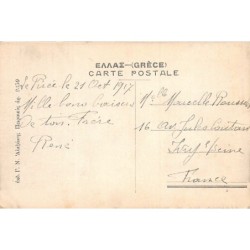 ΕΛΛΑΣ-(GRÈCE)
CARTE POSTALE
Le Pirée le 21 Oct 1917
Mille bons baisers
De ton frère
René
Mlle Marcelle Rousse
16
Ivry Seine
France